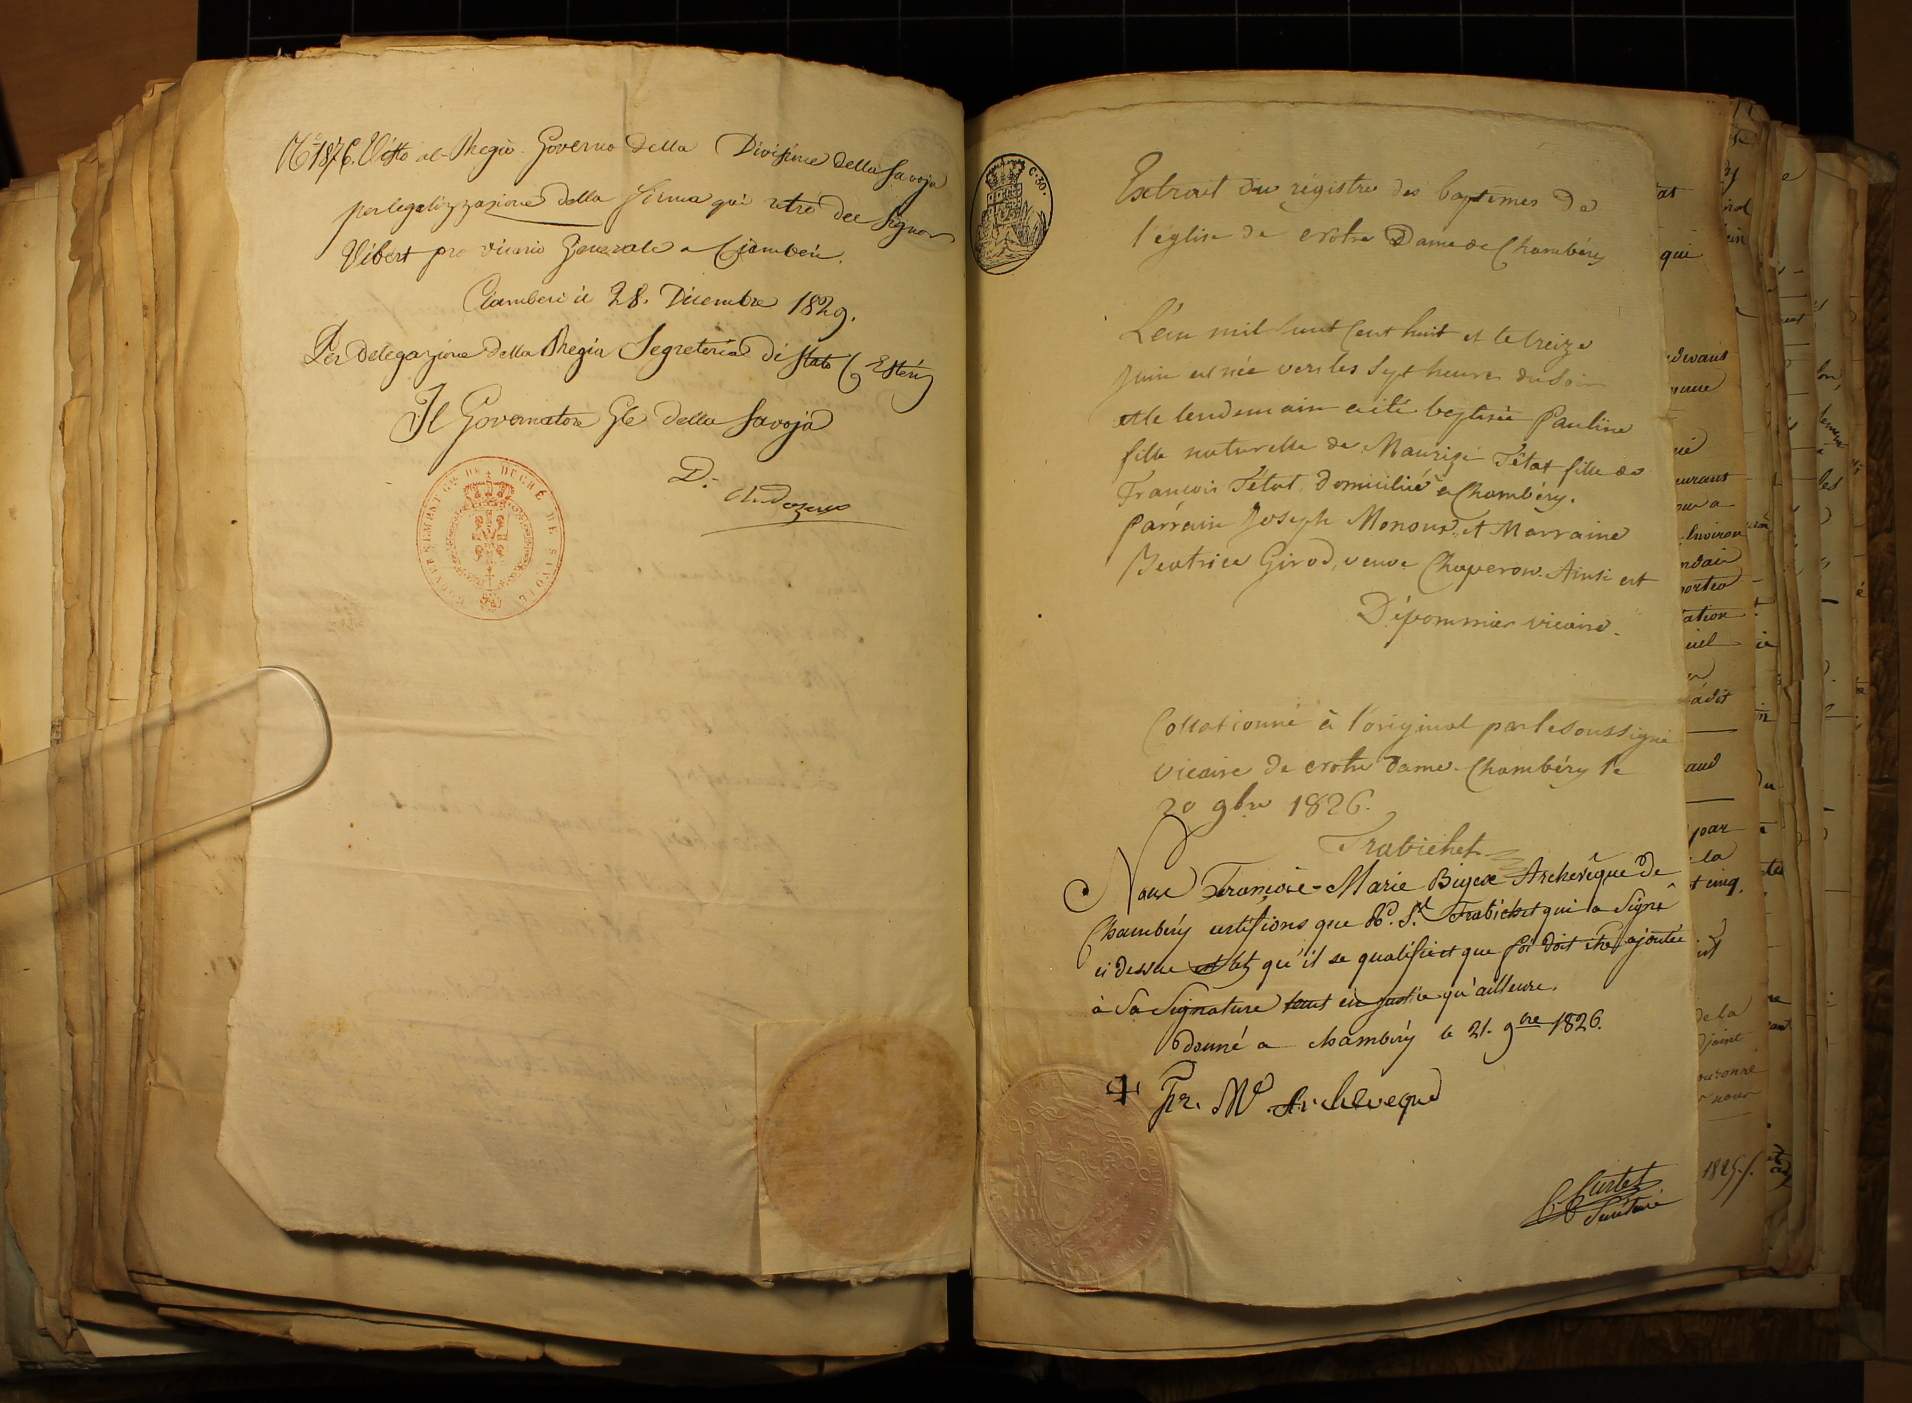 N.º 1876. Visto al Regio Governo della Divisione della Savoja
per legalizzazione della firma qui retro del Signor
Vibert pro vicario Generale a Ciamberì.
Ciamberi il 28. Dicembre 1829.
Per Delegazione della Regia Segreteria di Stato Esteri
Il Governatore Gle della Savoja
D.
GOUVERNEMENT GR. DU DUCHÉ DE SAVOIE
C. 30.
Extrait du régistre des baptêmes de
l'église de Notre Dame de Chambéry
L'an mil huit cent huit et le treize
Juin est née vers les sept heures du soir
et le lendemain a été baptisée Pauline
fille naturelle de Maurize Tétat fille de
François Tétat domicilié à Chambéry.
Parrain Joseph Monoux et Marraine
Beatrice Girod, veuve Chaperon. Ainsi est
Dépommier vicaire.
Collationné à l'original par le soussigné
vicaire de Notre Dame. Chambéry le
20 9bre 1826.
Trabichet
Nous François-Marie Bigex Archevêque de
Chambéry certifions que Rd. Sr. Trabichet qui a signé
ci dessus est tel qu'il se qualifie et que foi doit être ajoutée
à sa signature tant en justice qu'ailleurs.
donné à chambéry le 21. 9bre 1826.
✝ Fr. M. Archeveque
Curtet
Secrétaire